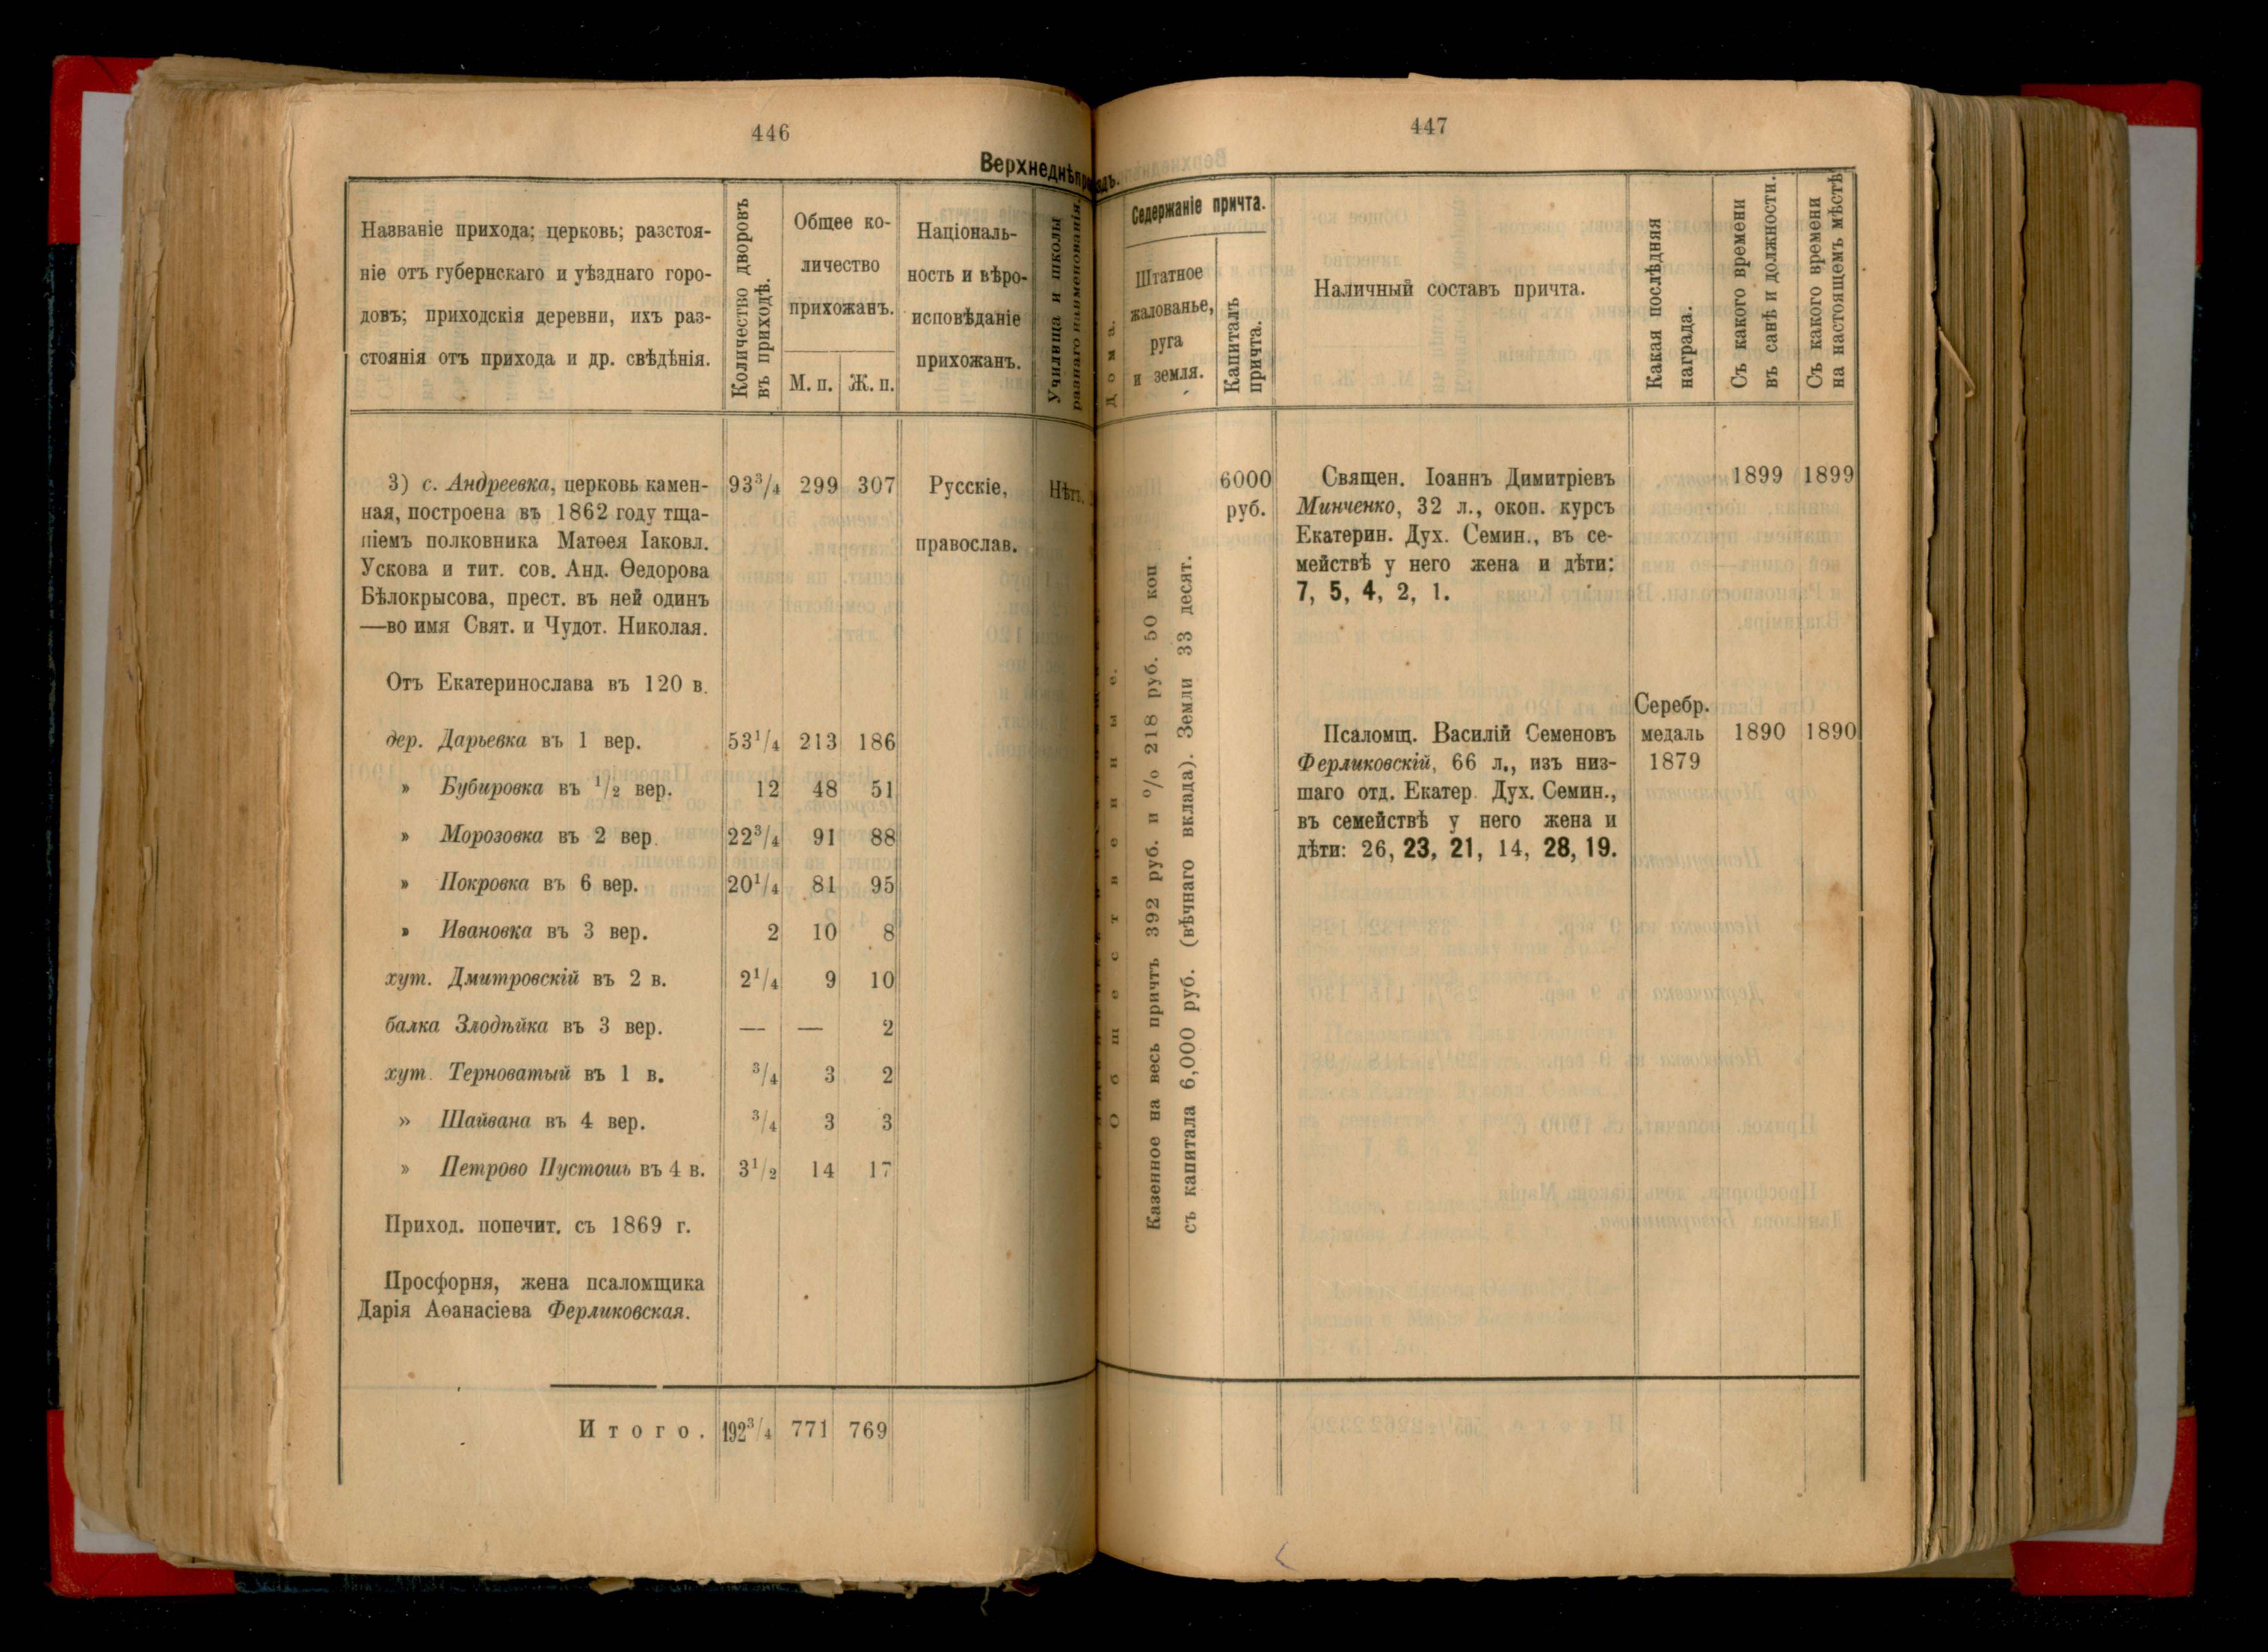 446
Верхнеднѣпр
Названіе прихода; церковь; разстоя-
ніе отъ губернскаго и уѣзднаго горо-
довъ; приходскія деревни, ихъ раз-
стоянія отъ прихода и др. свѣдѣнія.
Количество дворовъ
въ приходѣ.
Общее ко-
личество
прихожанъ.
М. п. Ж. п.
Національ-
ность и вѣро-
исповѣданіе
прихожанъ.
Училища и школы
разнаго наименованія.
3) с. Андреевка, церковь камен- 93³/₄ 299 307 Русскіе, Нѣтъ.
ная, построена въ 1862 году тща-
ніемъ полковника Матѳея Іаковл. православ.
Ускова и тит. сов. Анд. Ѳедорова
Бѣлокрысова, прест. въ ней одинъ
—во имя Свят. и Чудот. Николая.
Отъ Екатеринослава въ 120 в.
дер. Дарьевка въ 1 вер. 53¹/₄ 213 186
» Бубировка въ ¹/₂ вер. 12 48 51
» Морозовка въ 2 вер. 22³/₄ 91 88
» Покровка въ 6 вер. 20¹/₄ 81 95
» Ивановка въ 3 вер. 2 10 8
хут. Дмитровскій въ 2 в. 2¹/₄ 9 10
балка Злодѣйка въ 3 вер. — — 2
хут. Терноватый въ 1 в. ³/₄ 3 2
» Шайвана въ 4 вер. ³/₄ 3 3
» Петрово Пустошь въ 4 в. 3¹/₂ 14 17
Приход. попечит. съ 1869 г.
Просфорня, жена псаломщика
Дарія Аѳанасіева Ферликовская.
Итого. 192³/₄ 771 769
447
здъ.
Дома.
Содержаніе причта.
Штатное
жалованье,
руга
и земля.
Капиталъ
причта.
Наличный составъ причта.
Какая послѣдняя
награда.
Съ какого времени
въ санѣ и должности.
Съ какого времени
на настоящемъ мѣстѣ
Общественные.
Казенное на весь причтъ 392 руб. и % 218 руб. 50 коп
съ капитала 6,000 руб. (вѣчнаго вклада). Земли 33 десят.
6000
руб.
Священ. Іоаннъ Димитріевъ 1899 1899
Минченко, 32 л., окон. курсъ
Екатерин. Дух. Семин., въ се-
мействѣ у него жена и дѣти:
7, 5, 4, 2, 1.
Псаломщ. Василій Семеновъ Серебр. медаль 1879 1890 1890
Ферликовскій, 66 л., изъ низ-
шаго отд. Екатер. Дух. Семин.,
въ семействѣ у него жена и
дѣти: 26, 23, 21, 14, 28, 19.